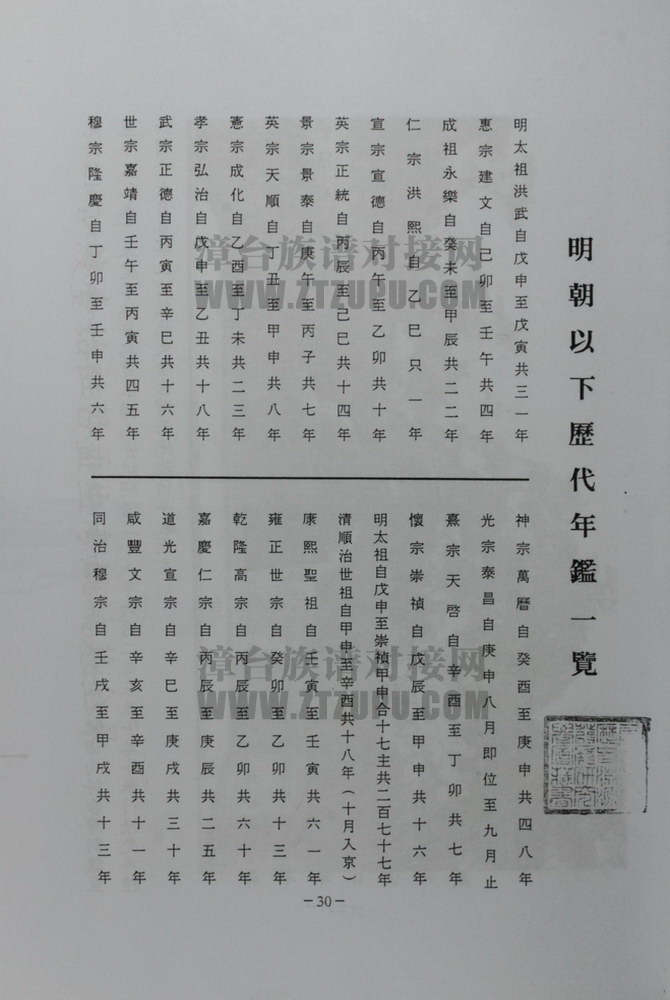 明朝以下歷代年鑑一覽
明太祖洪武自戊申至戊寅共三一年
惠宗建文自己卯至壬午共四年
成祖永樂自癸未至甲辰共二二年
仁宗洪熙自乙巳只一年
宣宗宣德自丙午至乙卯共十年
英宗正統自丙辰至己巳共十四年
景宗景泰自庚午至丙子共七年
英宗天順自丁丑至甲申共八年
憲宗成化自乙酉至丁未共二三年
孝宗弘治自戊申至乙丑共十八年
武宗正德自丙寅至辛巳共十六年
世宗嘉靖自壬午至丙寅共四五年
穆宗隆慶自丁卯至壬申共六年
神宗萬曆自癸酉至庚申共四八年
光宗泰昌自庚申八月即位至九月止
熹宗天啓自辛酉至丁卯共七年
懷宗崇禎自戊辰至甲申共十六年
明太祖自戊申至崇禎甲申合十七主共二百七十七年
清順治世祖自甲申至辛酉共十八年（十月入京）
康熙聖祖自壬寅至壬寅共六一年
雍正世宗自癸卯至乙卯共十三年
乾隆高宗自丙辰至乙卯共六十年
嘉慶仁宗自丙辰至庚辰共二五年
道光宣宗自辛巳至庚戌共三十年
咸豐文宗自辛亥至辛酉共十一年
同治穆宗自壬戌至甲戌共十三年
－30－
漳台族谱对接网
WWW.ZTZUPU.COM
漳台族谱对接网
WWW.ZTZUPU.COM